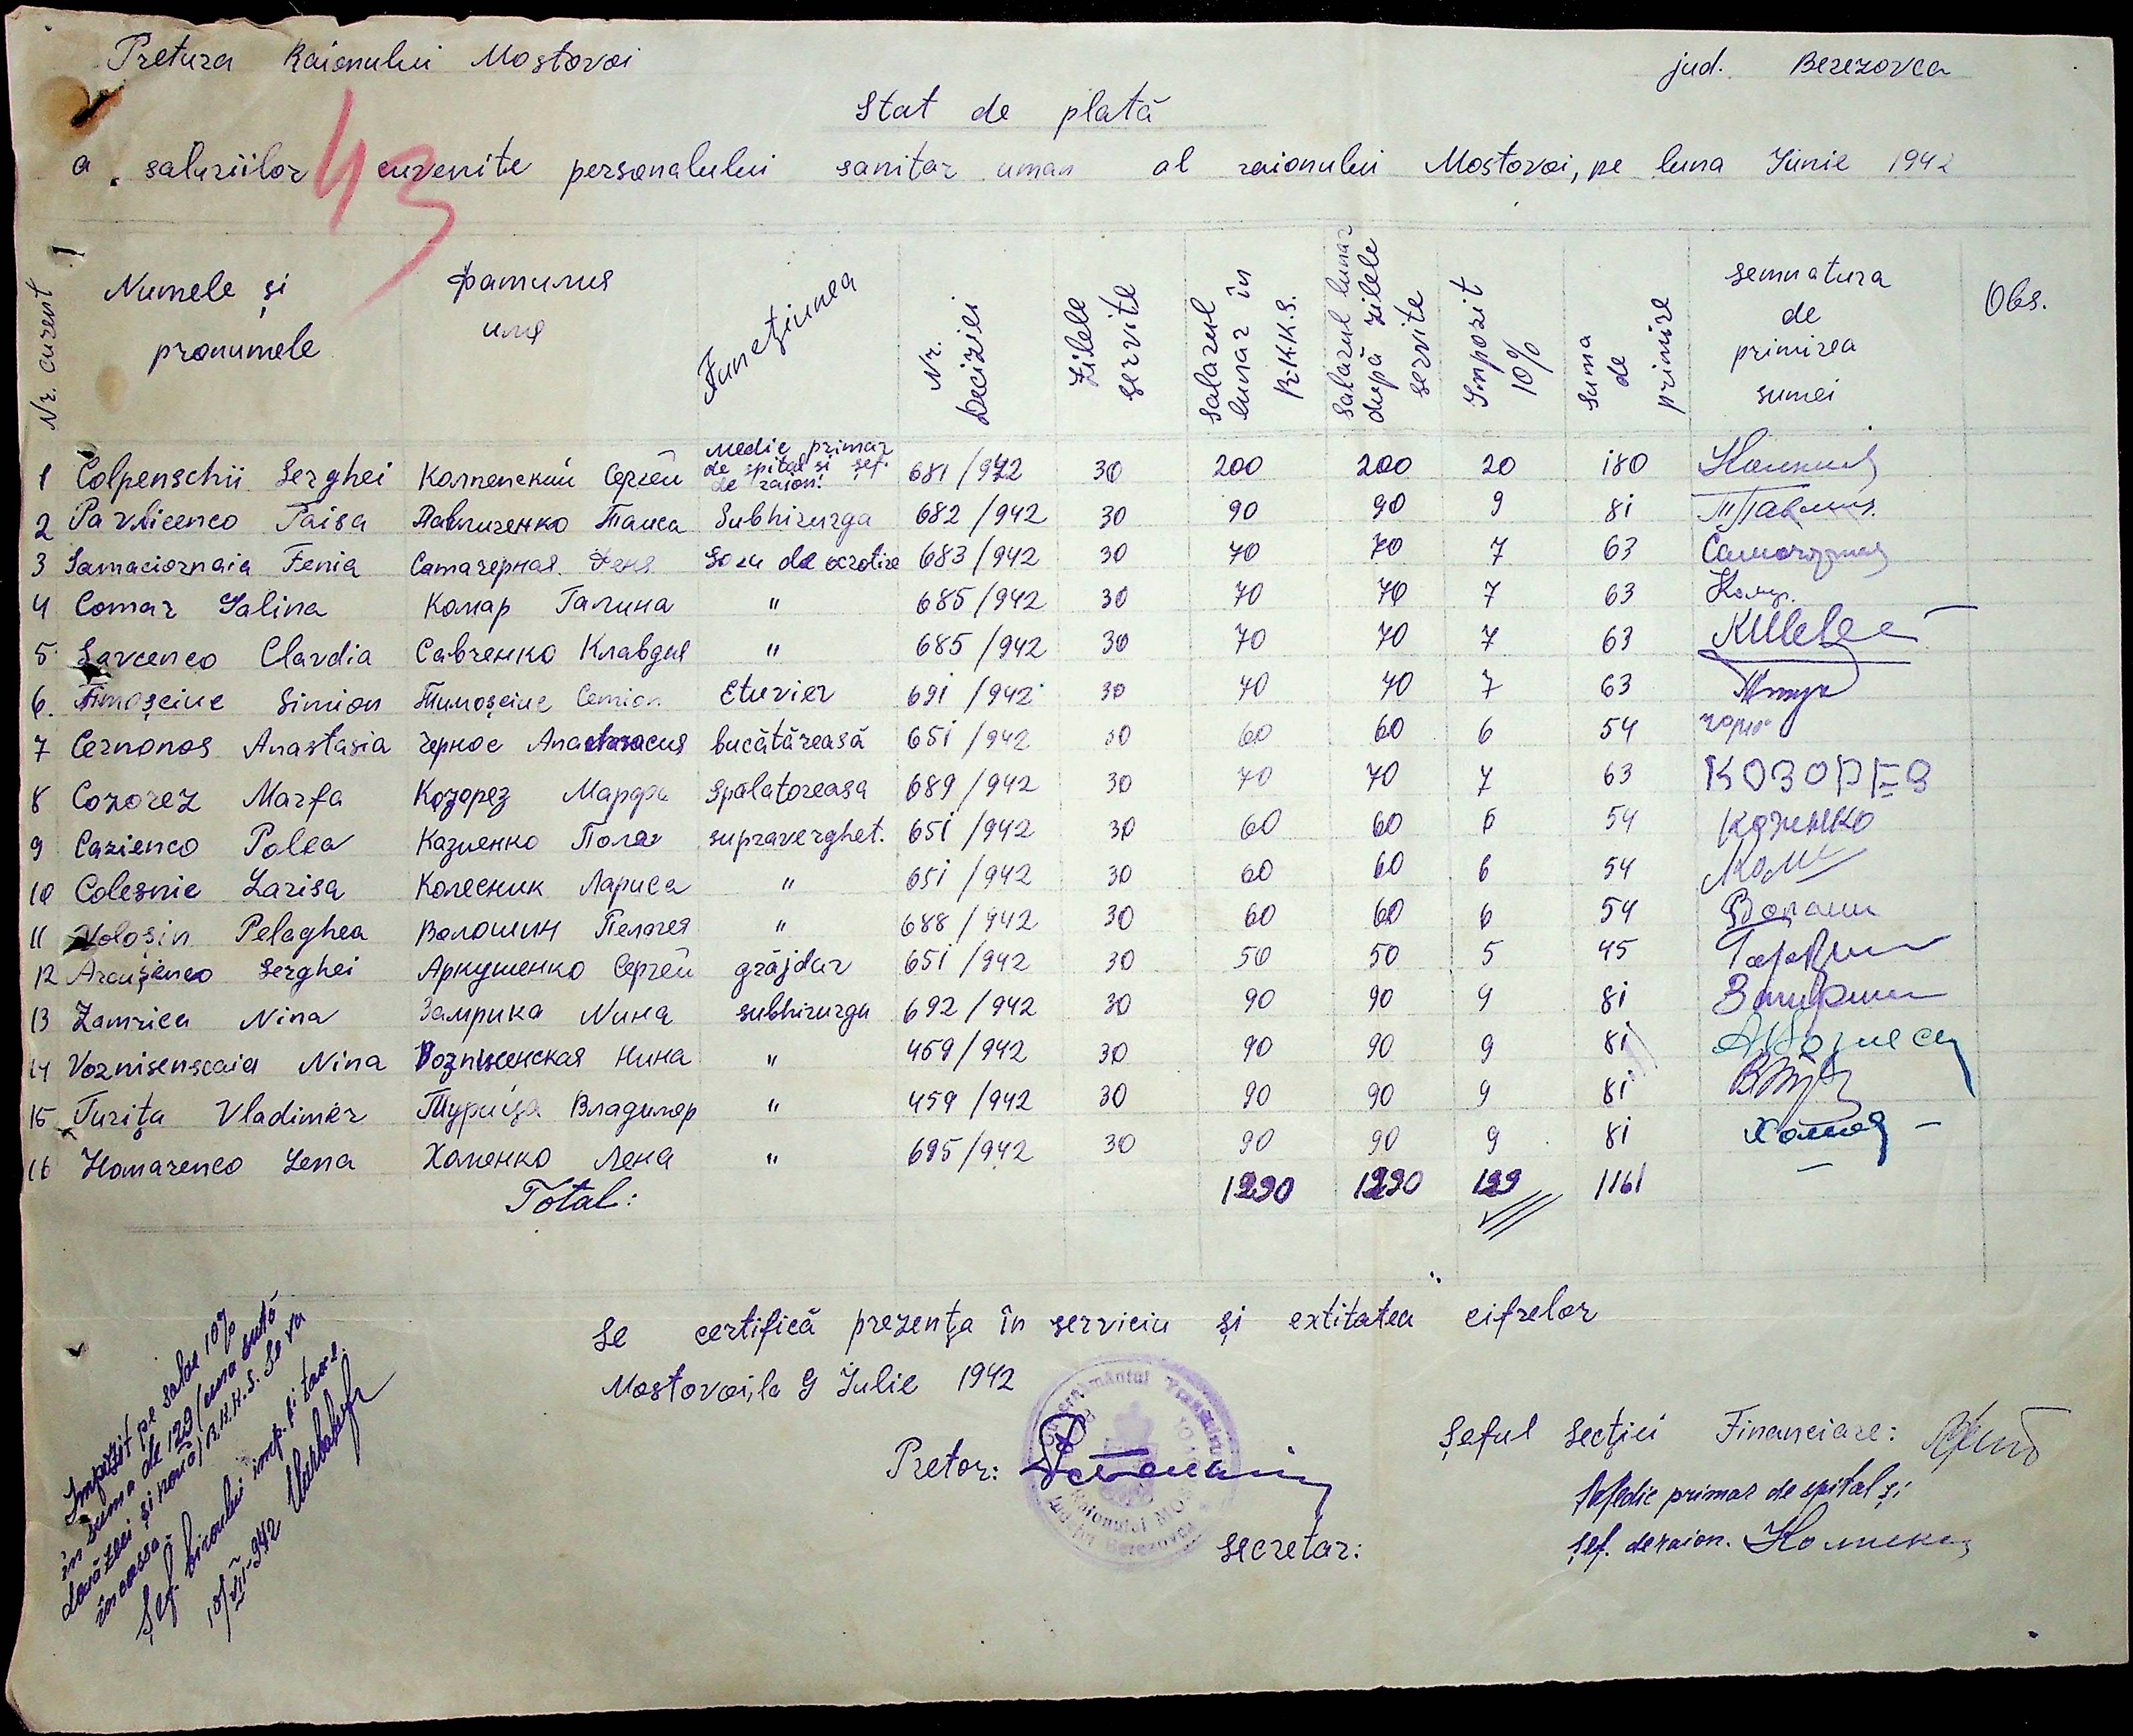 Pretura Raionului Mostovoi jud. Berezovca
Stat de plată
43
a salariilor cuvenite personalului sanitar uman al raionului Mostovoi, pe luna Iunie 1942
Nr. curent Numele și pronumele Фамилия имя Funcțiunea Nr. Deciziei Zilele servite Salarul lunar în R.K.K.S. Salarul lunar după zilele servite Impozit 10% Suma de primire semnatura de primirea sumei Obs.
1 Colpenschii Serghei Колпенский Сергей Medic primar de spital și șef. de raion. 681/942 30 200 200 20 180
2 Pavlicenco Taisa Павличенко Таиса Subhirurga 682/942 30 90 90 9 81 Павлич.
3 Samaciornaia Fenia Самачерная Феня Sora de ocrotire 683/942 30 70 70 7 63
4 Comar Galina Комар Галина " 685/942 30 70 70 7 63 Комар.
5 Savcenco Clavdia Савченко Клавдия " 685/942 30 70 70 7 63
6. Timoșciuc Simion Тимоșciuc Семион Etuvier 691/942 30 70 70 7 63
7 Cernonos Anastasia Чернос Анастасия bucătăreasă 651/942 30 60 60 6 54
8 Cozorez Marfa Козорез Марфа Spălatoreasa 689/942 30 70 70 7 63 КОЗОРЕЗ
9 Cazienco Polea Казиенко Поля supraverghet. 651/942 30 60 60 6 54
10 Colesnic Larisa Колесник Лариса " 651/942 30 60 60 6 54
11 Voloșin Pelaghea Волошин Пелогея " 688/942 30 60 60 6 54
12 Arcușenco Serghei Аркушенко Сергей grăjdar 651/942 30 50 50 5 45
13 Zamrica Nina Замрика Нина subhirurga 692/942 30 90 90 9 81
14 Voznisenscaia Nina Возписенская Нина " 459/942 30 90 90 9 81
15 Turița Vladimir Турița Владимер " 459/942 30 90 90 9 81
16 Homarenco Lena Хоменко Лена " 695/942 30 90 90 9 81
Total: 1290 1290 129 1161
Se certifică prezența în serviciu și extitatea cifrelor
Mostovoi, la 9 Iulie 1942
Pretor:
Secretar:
Șeful Secției Financiare:
Medic primar de spital și
șef. de raion.
Impozit pe salar 10%
în suma de 129/una sută
douăzeci și nouă/R.K.K.S. Se va
încassa
Șef. biroului imp. și taxe.
10/VII-942
Guvernământul Transnistriei
Raionului MOSTOVOI
Județul Berezovca